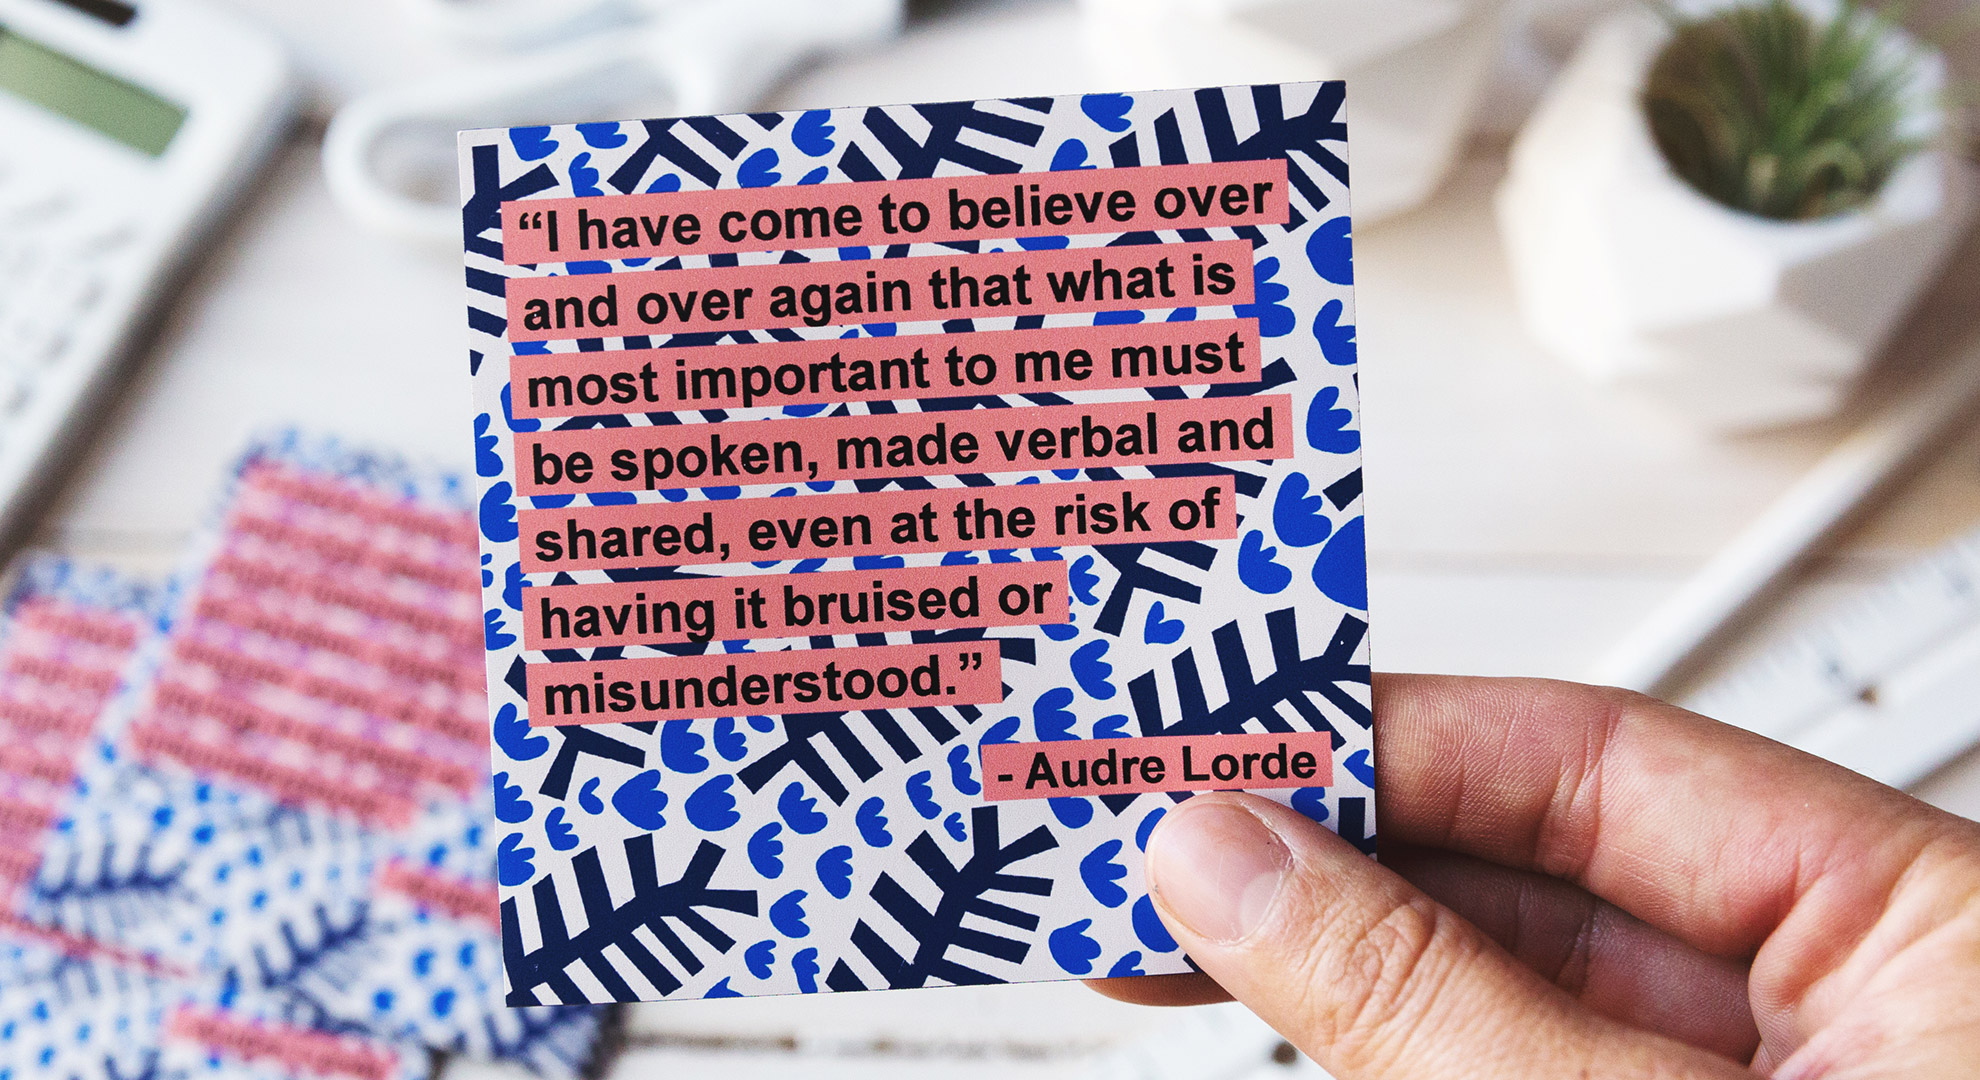 “I have come to believe over
and over again that what is
most important to me must
be spoken, made verbal and
shared, even at the risk of
having it bruised or
misunderstood.”
- Audre Lorde